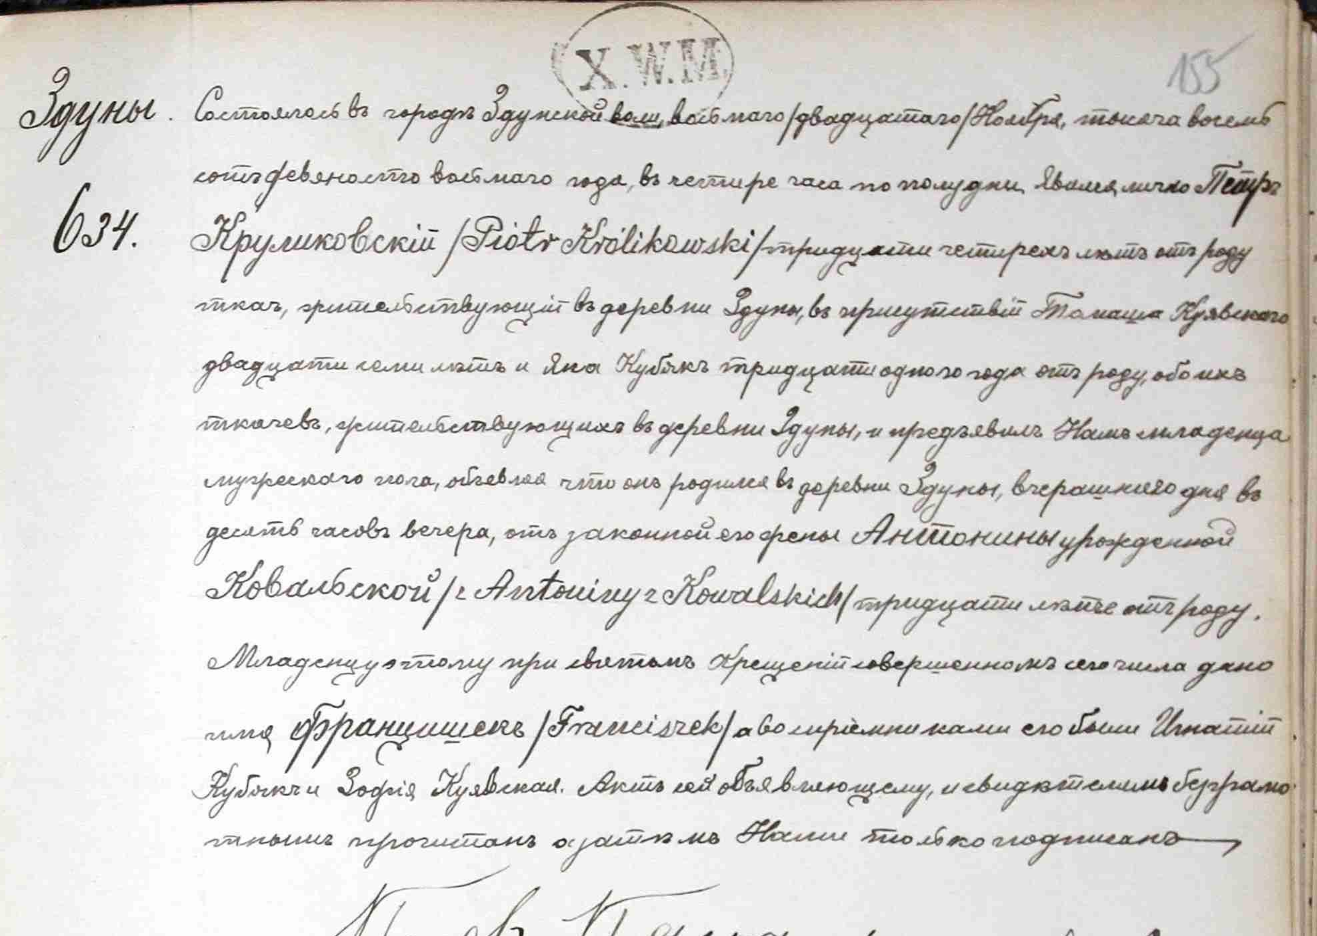 X.W.M
155
Здуны.
634.
Состоялось въ городѣ Здунской воли, восьмаго /двадцатаго/ Ноября, тысяча восемь
сотъ девяносто восьмаго года, въ четыре часа по полудни. Явился лично Петръ
Круликовскій /Piotr Królikowski/ тридцати четырехъ лѣтъ отъ роду
ткач, жительствующій въ деревни Здуны, въ присутствій Томаша Куявскаго
двадцати семи лѣтъ и Яна Кубякъ тридцати одного года отъ роду, обоихъ
ткачевъ, жительствующихъ въ деревни Здуны, и предъявилъ Намъ младенца
мужескаго пола, объевляя что онъ родился въ деревни Здуны, вчерашнего дня въ
десять часовъ вечера, отъ законной его жены Антонины урожденной
Ковальской /z Antoniny z Kowalskich/ тридцати лѣтъ отъ роду.
Младенцу этому при святомъ крещеніи совершенномъ сего числа дано
имя Францишекъ /Franciszek/ а воспріемниками его были Игнатій
Кубякъ и Зофія Куявская. Актъ сей объявляющему, и свидѣтелямъ безграмо
тнымъ прочитанъ а затѣмъ Нами только подписанъ